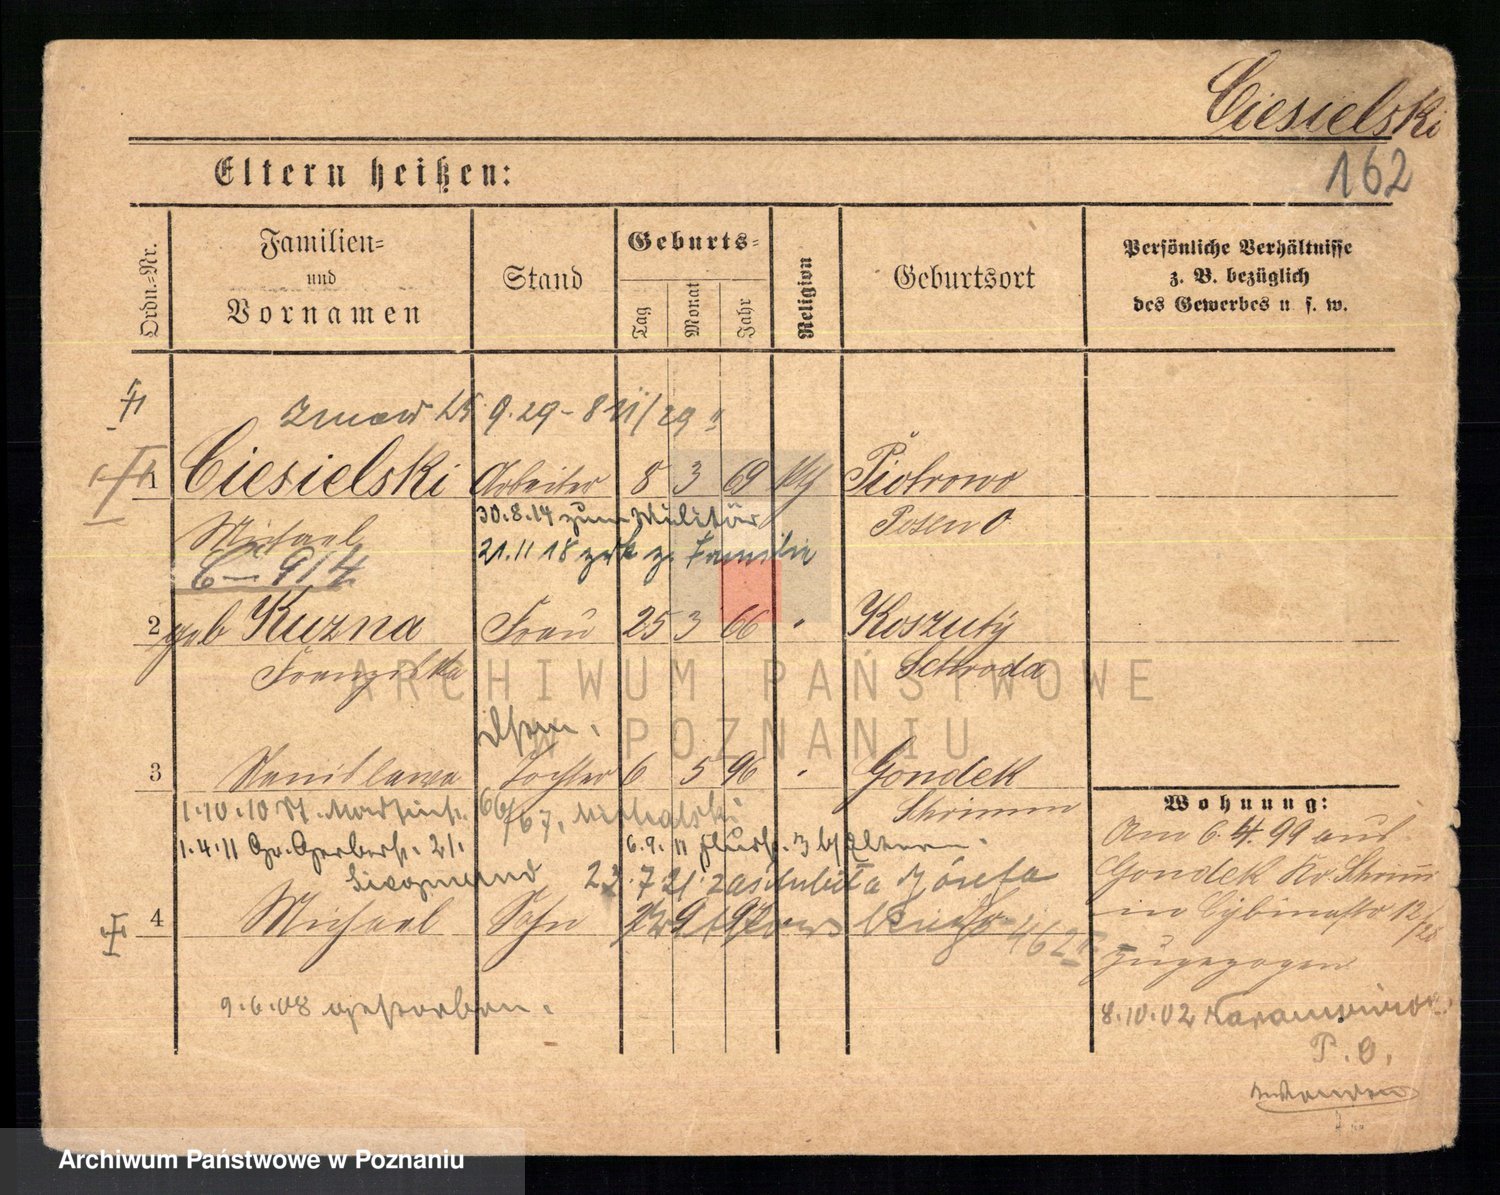 Ciesielski
162
Eltern heißen:
Ordn.-Nr.
Familien-
und
Vornamen
Stand
Geburts-
Tag
Monat
Jahr
Religion
Geburtsort
Persönliche Verhältnisse
z. B. bezüglich
des Gewerbes u. s. w.
9.29 - 8 VI/29
1 Ciesielski Arbeiter 8 3 69 Piotrowo
Michael 30.8.14 zum Militär Posen O
C — 914 21.11 18 zrk z. Familie
2 geb Kuzna Frau 25 3 66 " Koszuty
Franziska Schroda
3 Stanislawa Tochter 6 5 96 " Gondek
1.10.10 St. Martinstr. 66/67. Michalski Schrimm
1.4.11 Gr. Gerberstr. 21. 6.9.11 Flurstr. 3 b/Eltern.
Siegmund 23.7 21 zaślubiła Józefa
4 Michael Sohn 462 II
9.6.08 gestorben.
Wohnung:
Am 6.4.99 aus
Gondek Kr. Schrimm
in Cybinastr 12/
zugezogen
8.10.02
P. O.
ARCHIWUM PAŃSTWOWE
W POZNANIU
Archiwum Państwowe w Poznaniu